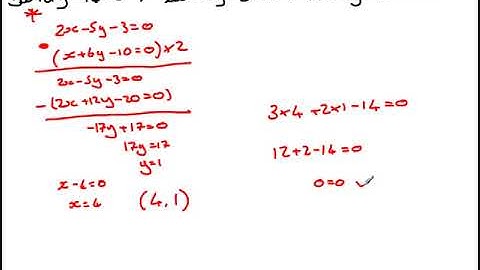 *
2x-5y-3=0
• (x+6y-10=0)×2
2x-5y-3=0
-(2x+12y-20=0)
-17y+17=0
17y=17
y=1
x-4=0
x=4
(4,1)
3×4+2×1-14=0
12+2-14=0
0=0 ✓